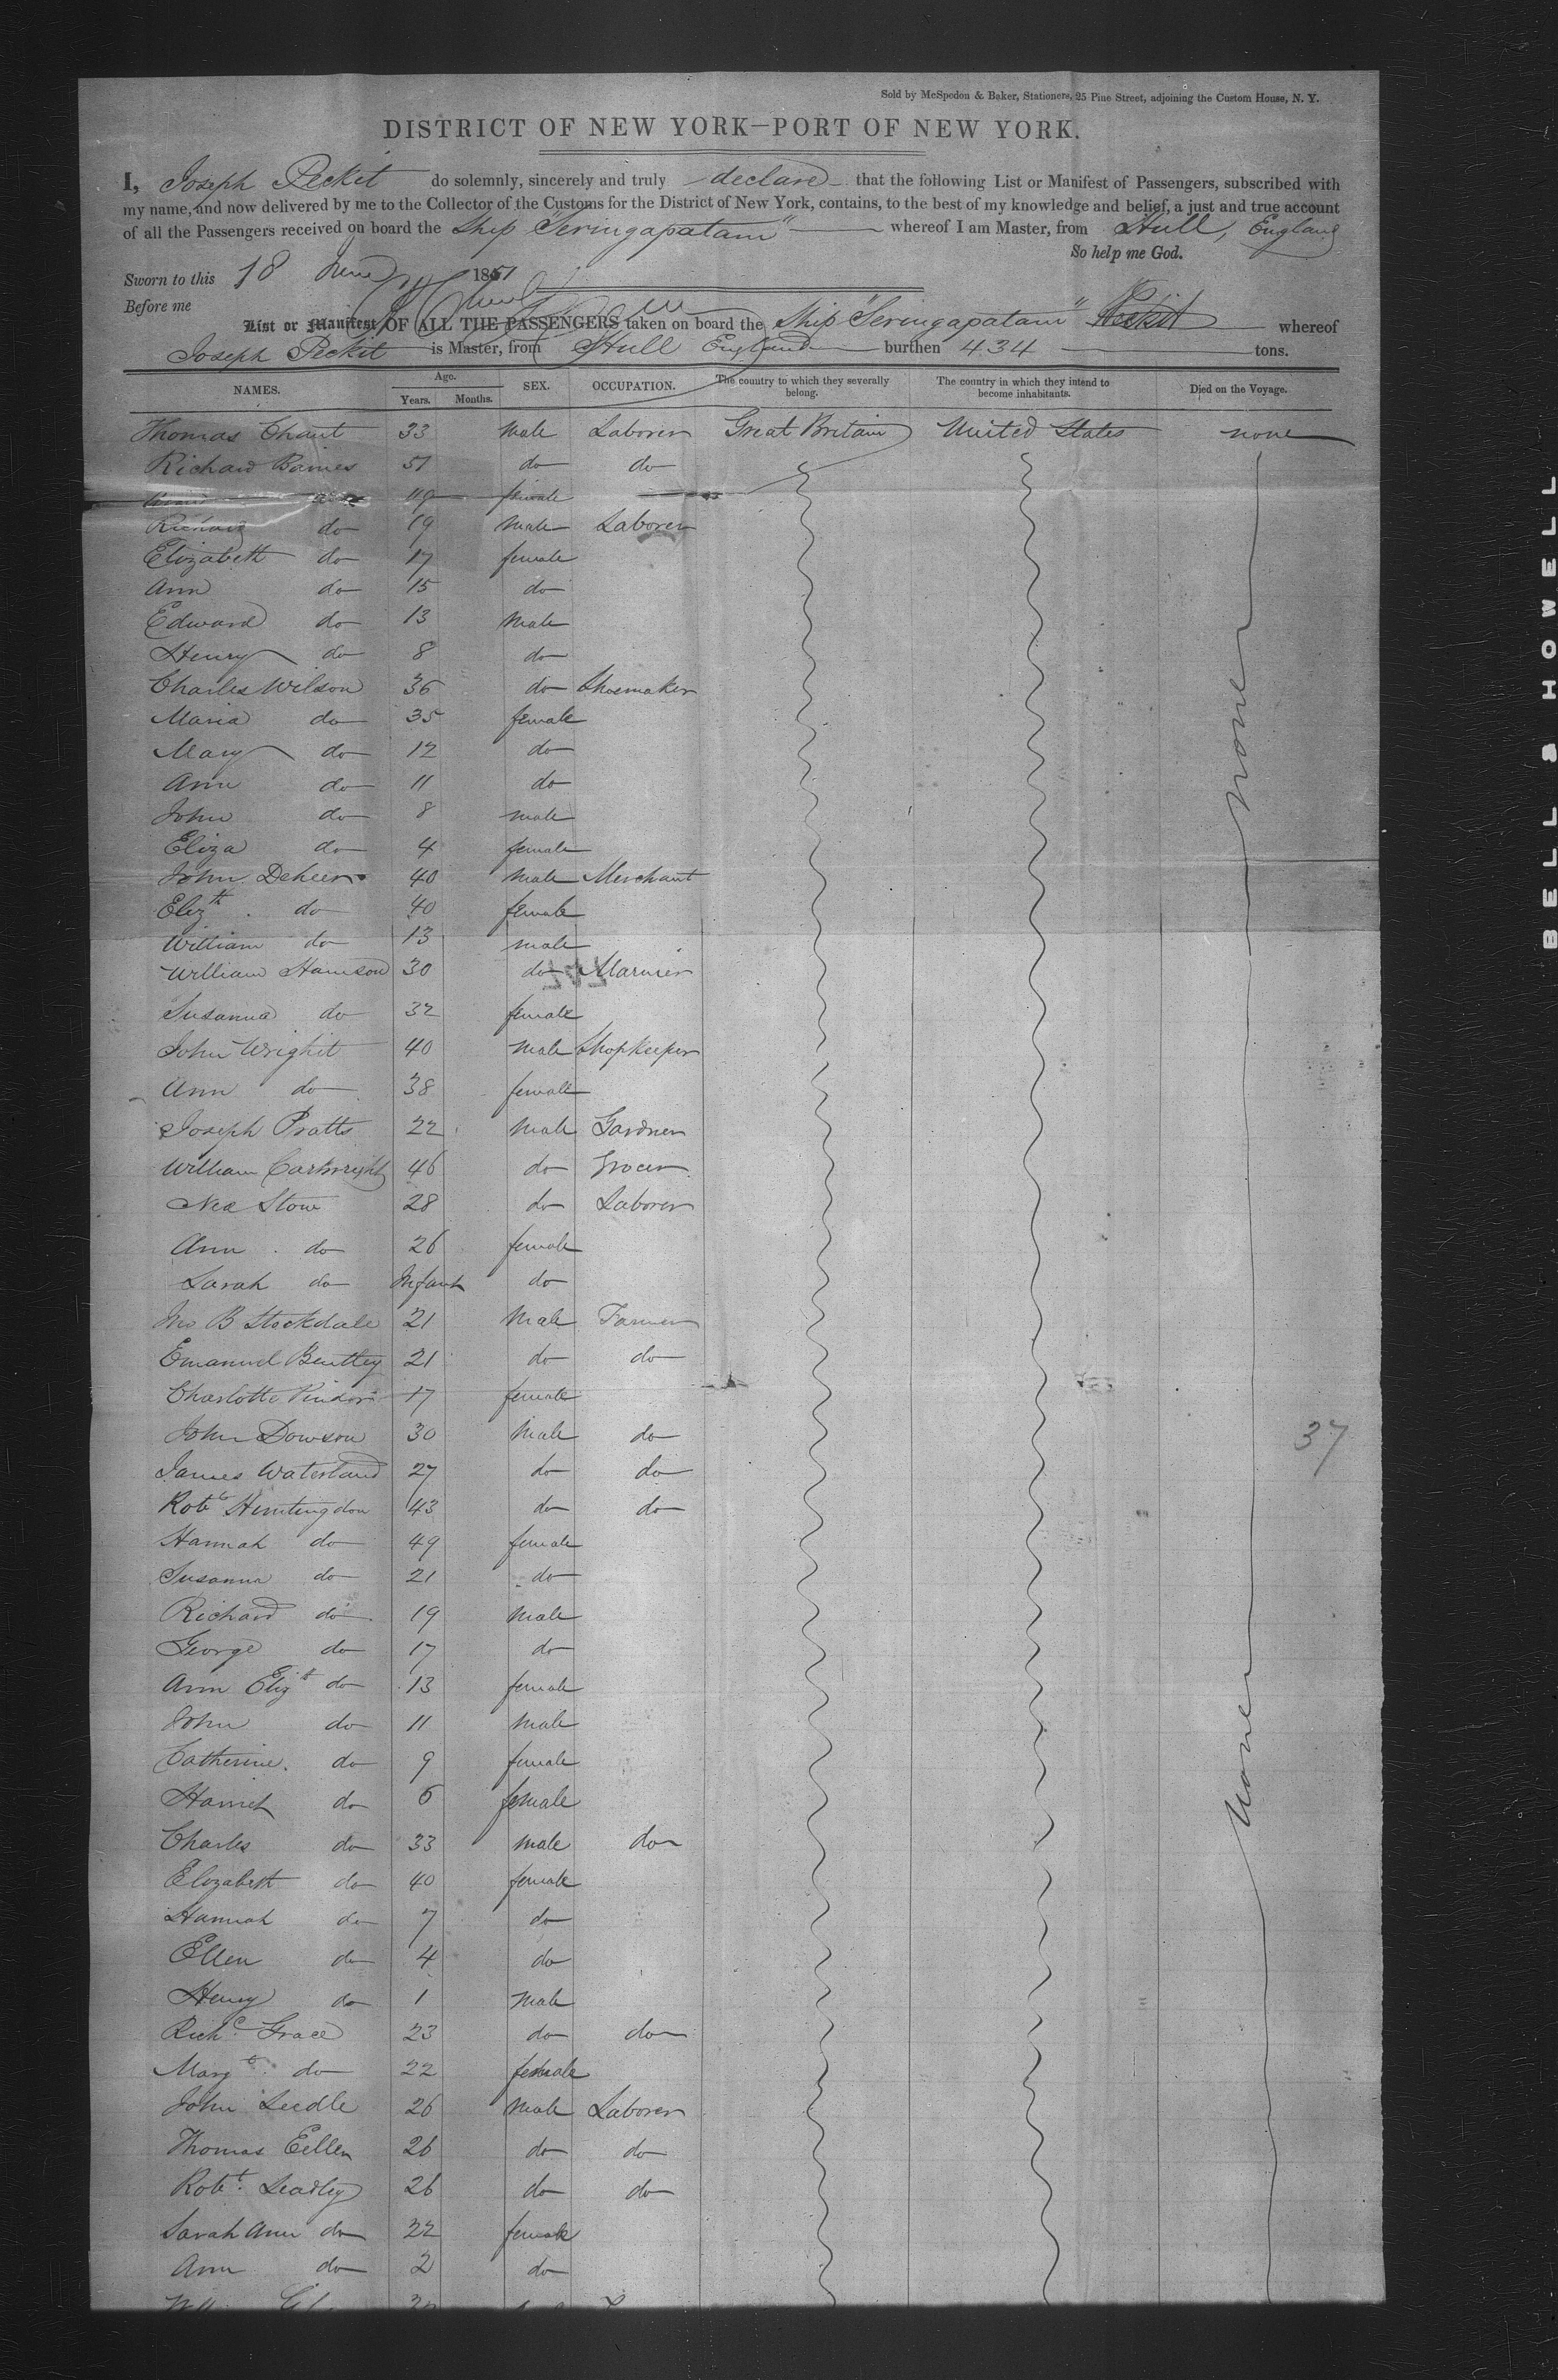 Sold by McSpedon & Baker, Stationers, 25 Pine Street, adjoining the Custom House, N. Y.
DISTRICT OF NEW YORK—PORT OF NEW YORK.
I, Joseph Peckit do solemnly, sincerely and truly declare that the following List or Manifest of Passengers, subscribed with
my name, and now delivered by me to the Collector of the Customs for the District of New York, contains, to the best of my knowledge and belief, a just and true account
of all the Passengers received on board the Ship "Seringapatam" whereof I am Master, from Hull, England
So help me God.
Sworn to this 18 June 1851
Before me
List or Manifest OF ALL THE PASSENGERS taken on board the Ship "Seringapatam" Peckit whereof
Joseph Peckit is Master, from Hull England burthen 434 tons.
NAMES. Age. Years. Months. SEX. OCCUPATION. The country to which they severally belong. The country in which they intend to become inhabitants. Died on the Voyage.
Thomas Chant 33 Male Laborer Great Britain United States none
Richard Baines 51 do do
do 49 female
Richard do 19 Male Laborer
Elizabeth do 17 female
Ann do 15 do
Edward do 13 Male
Henry do 8 do
Charles Wilson 36 do Shoemaker
Maria do 35 female
Mary do 12 do
Ann do 11 do
John do 8 male
none
Eliza do 4 female
John Deheer 40 Male Merchant
Elizth do 40 female
William do 13 male
William Harrison 30 do Mariner
Susanna do 32 female
John Wright 40 Male Shopkeeper
Ann do 38 female
Joseph Pratts 22 Male Gardner
William Cartwright 46 do Grocer
Stow 28 do Laborer
Ann do 26 female
Sarah do Infant do
Jno B Stockdale 21 Male Farmer
Emanuel Bentley 21 do do
Charlotte 17 female
John Dowson 30 Male do
37
James Waterland 27 do do
Robt Huntingdon 43 do do
Hannah do 49 female
Susanna do 21 do
Richard do 19 Male
George do 17 do
Ann Elizth do 13 female
John do 11 Male
Catherine do 9 female
none
Harriet do 6 female
Charles do 33 male do
Elizabeth do 40 female
Hannah do 7 do
Ellen do 4 do
Henry do 1 Male
Richd Grace 23 do do
Margt do 22 female
John Leedle 26 Male Laborer
Thomas Eellen 26 do do
Robt Leadley 26 do do
Sarah Ann do 22 female
Ann do 2 do
BELL & HOWELL